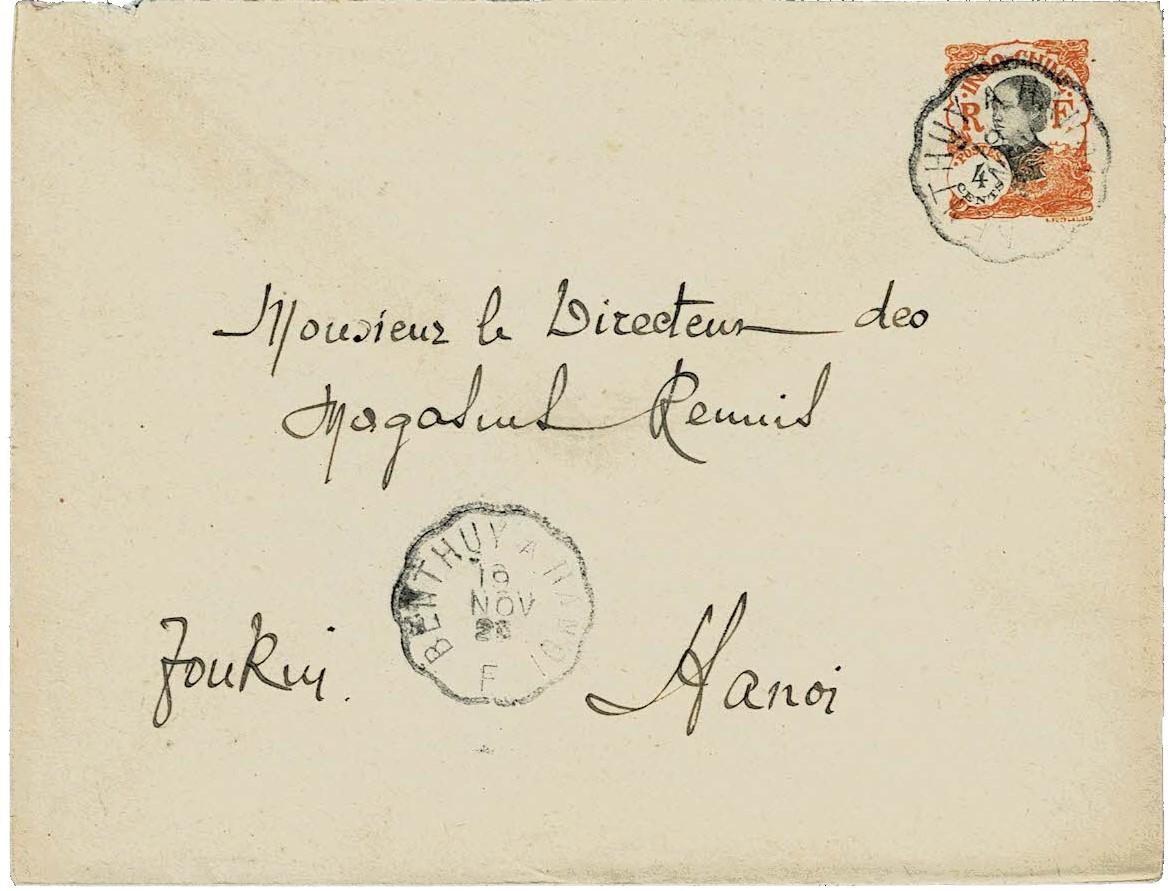 INDO-CHINE
R F
POSTES
4
CENTS
BENTHUY A HANOI
Monsieur le Directeur des
Magasins Réunis
BENTHUY A HANOI
NOV
F
Tonkin.
Hanoi